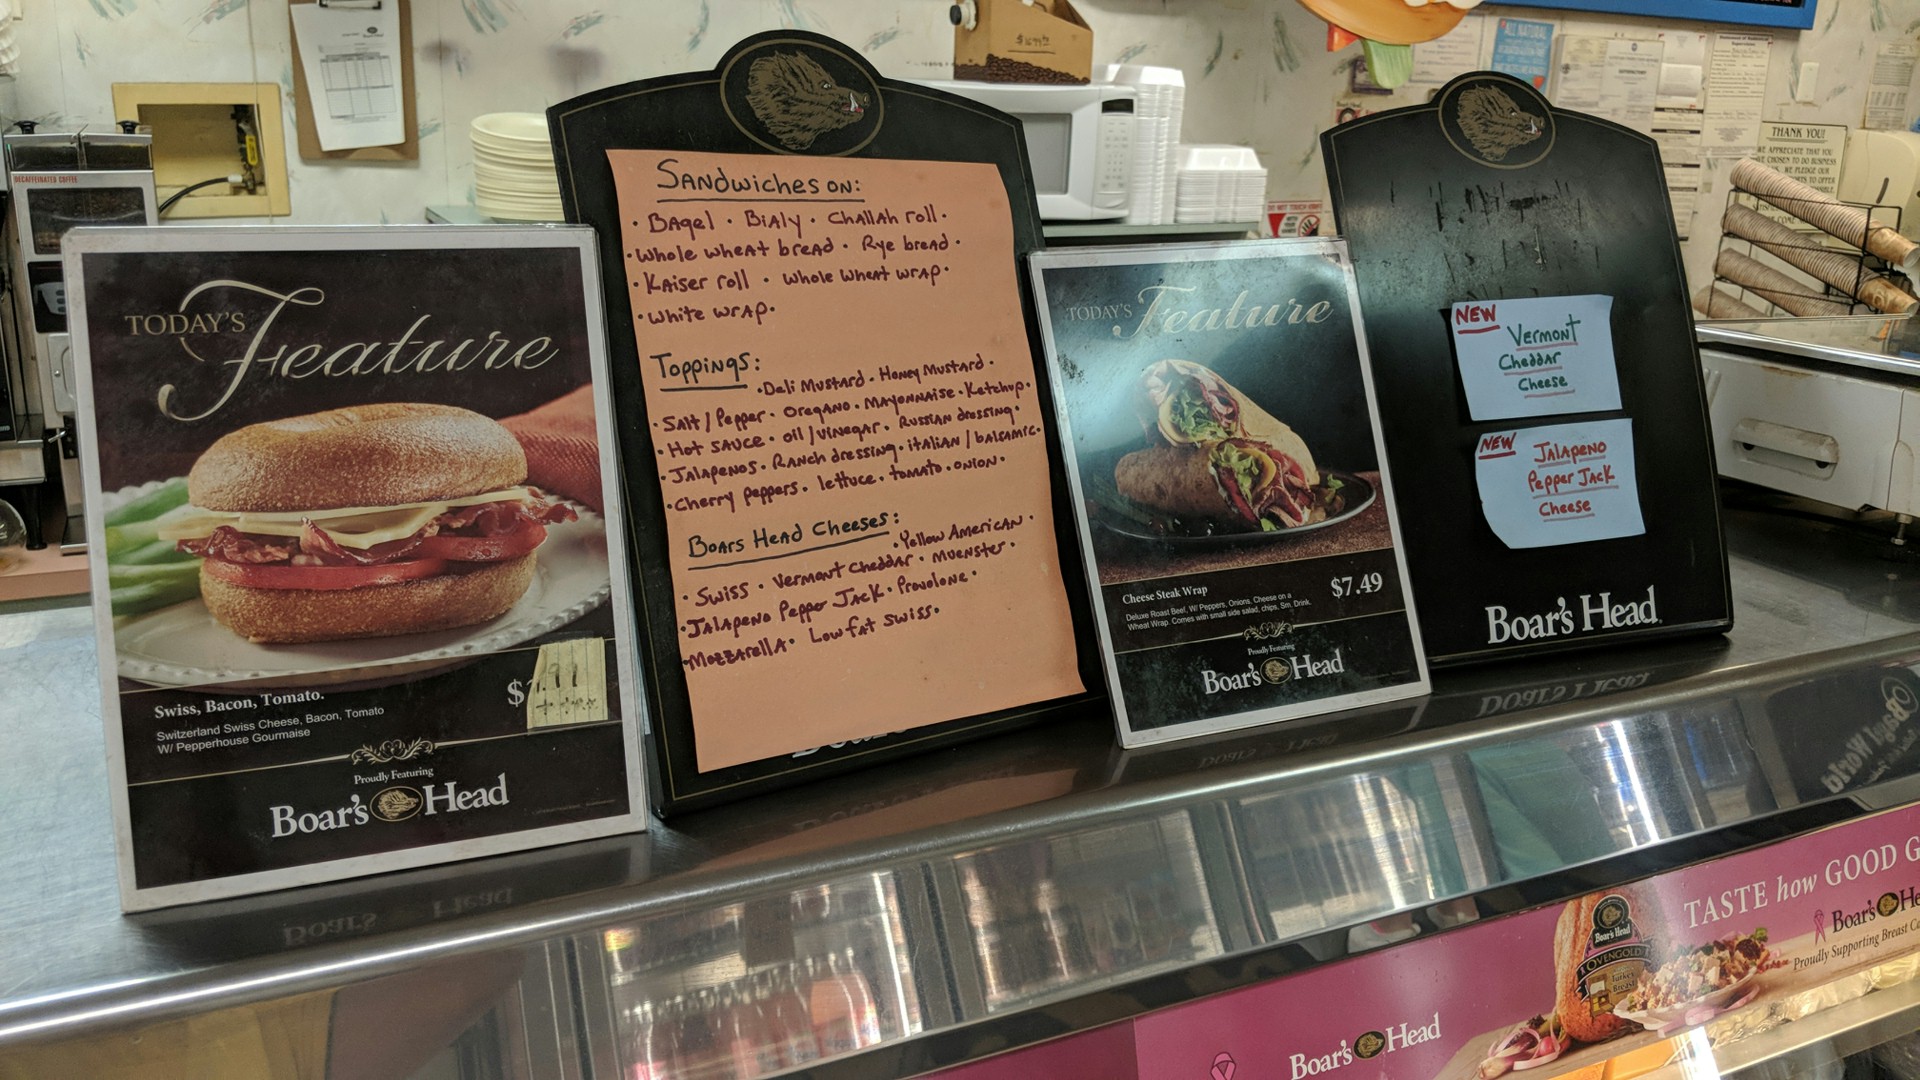 TODAY'S
Feature
Swiss, Bacon, Tomato.
Switzerland Swiss Cheese, Bacon, Tomato
W/ Pepperhouse Gourmaise
Proudly Featuring
Boar's Head
SANDWICHES ON:
· BAgel · BiAly · CHAllAH roll ·
· Whole wheat bread · Rye bread ·
· KAiser roll · whole wheat wrap ·
· white wrap ·
Toppings:
· Deli Mustard · Honey Mustard ·
· Salt / Pepper · Oregano · Mayonnaise · Ketchup ·
· Hot sauce · oil / vinegar · Russian dressing ·
· Jalapenos · Ranch dressing · italian / balsamic ·
· Cherry peppers · lettuce · tomato · onion ·
Boars Head Cheeses:
· Yellow American ·
· Swiss · Vermont Cheddar · Muenster ·
· Jalapeno Pepper Jack · Provolone ·
· Mozzarella · Low fat Swiss ·
TODAY'S
Feature
Cheese Steak Wrap
$7.49
Deluxe Roast Beef, W/ Peppers, Onions, Cheese on a
Wheat Wrap. Comes with small side salad, chips, Sm. Drink.
Proudly Featuring
Boar's Head
NEW
Vermont
Cheddar
Cheese
NEW
Jalapeno
Pepper Jack
Cheese
Boar's Head
DECAFFEINATED COFFEE
ALL NATURAL
THANK YOU!
Bagel World
TASTE how GOOD G
Boar's He
Proudly Supporting Breast Ca
Boar's Head
OVENGOLD
Turkey
Breast
Boar's Head